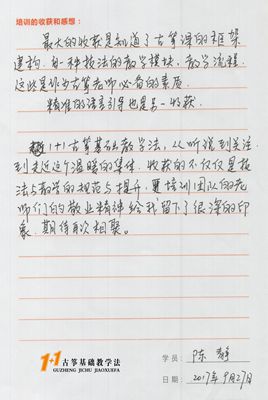 培训的收获和感想：
最大的收获是知道了古筝课的框架
建构。每一种技法的教学模块，教学流程，
这些是作为古筝老师必备的素质。
精准的语言引导也是另一收获。
1+1古筝基础教学法，从听说到关注
到走近这个温暖的集体，收获的不仅仅是技
法与教学的规范与提升，更培训团队的老
师们的敬业精神给我留下了很深的印
象，期待再次相聚。
1+1古筝基础教学法
GUZHENG JICHU JIAOXUEFA
学员：陈静
日期：2017年9月27日